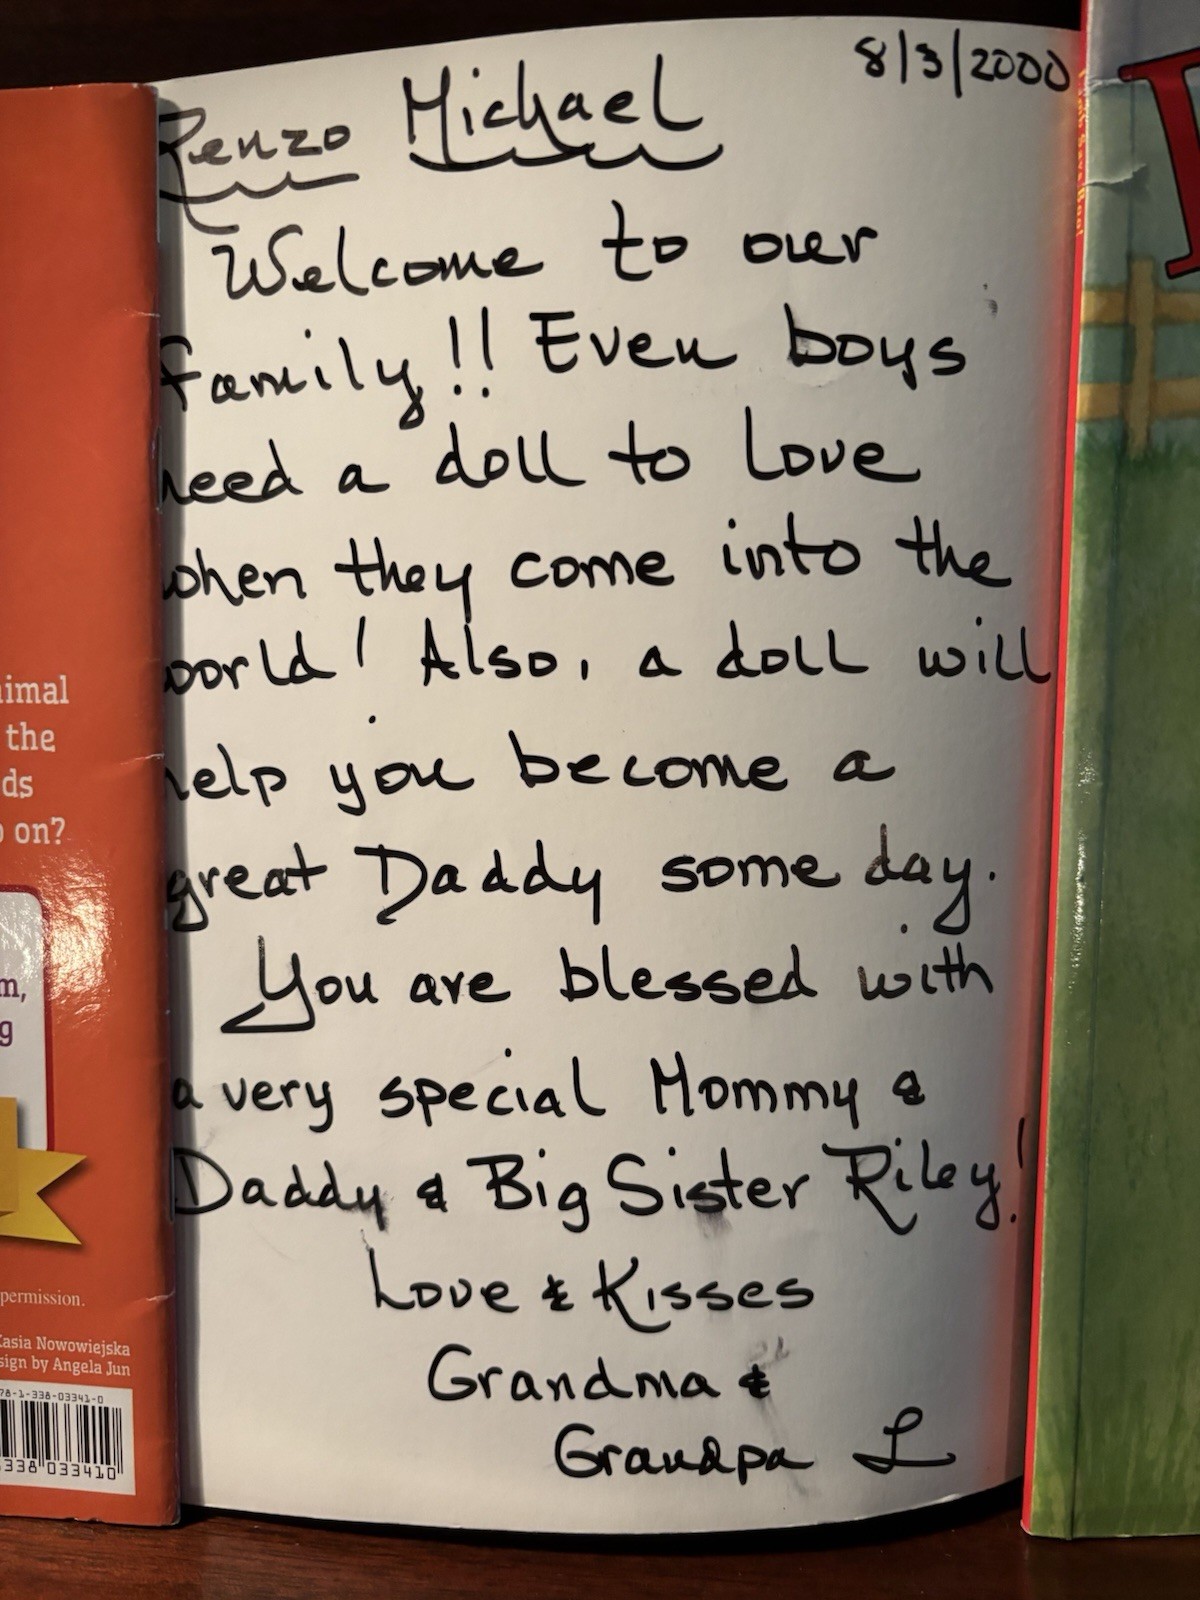 8/3/2000
Renzo Michael
Welcome to our
family!! Even boys
need a doll to love
when they come into the
world! Also, a doll will
help you become a
great Daddy some day.
You are blessed with
a very special Mommy &
Daddy & Big Sister Riley!
Love & Kisses
Grandma &
Grandpa L
imal
the
ds
on?
m,
g
permission.
Kasia Nowowiejska
sign by Angela Jun
78-1-338-03341-0
338 033410